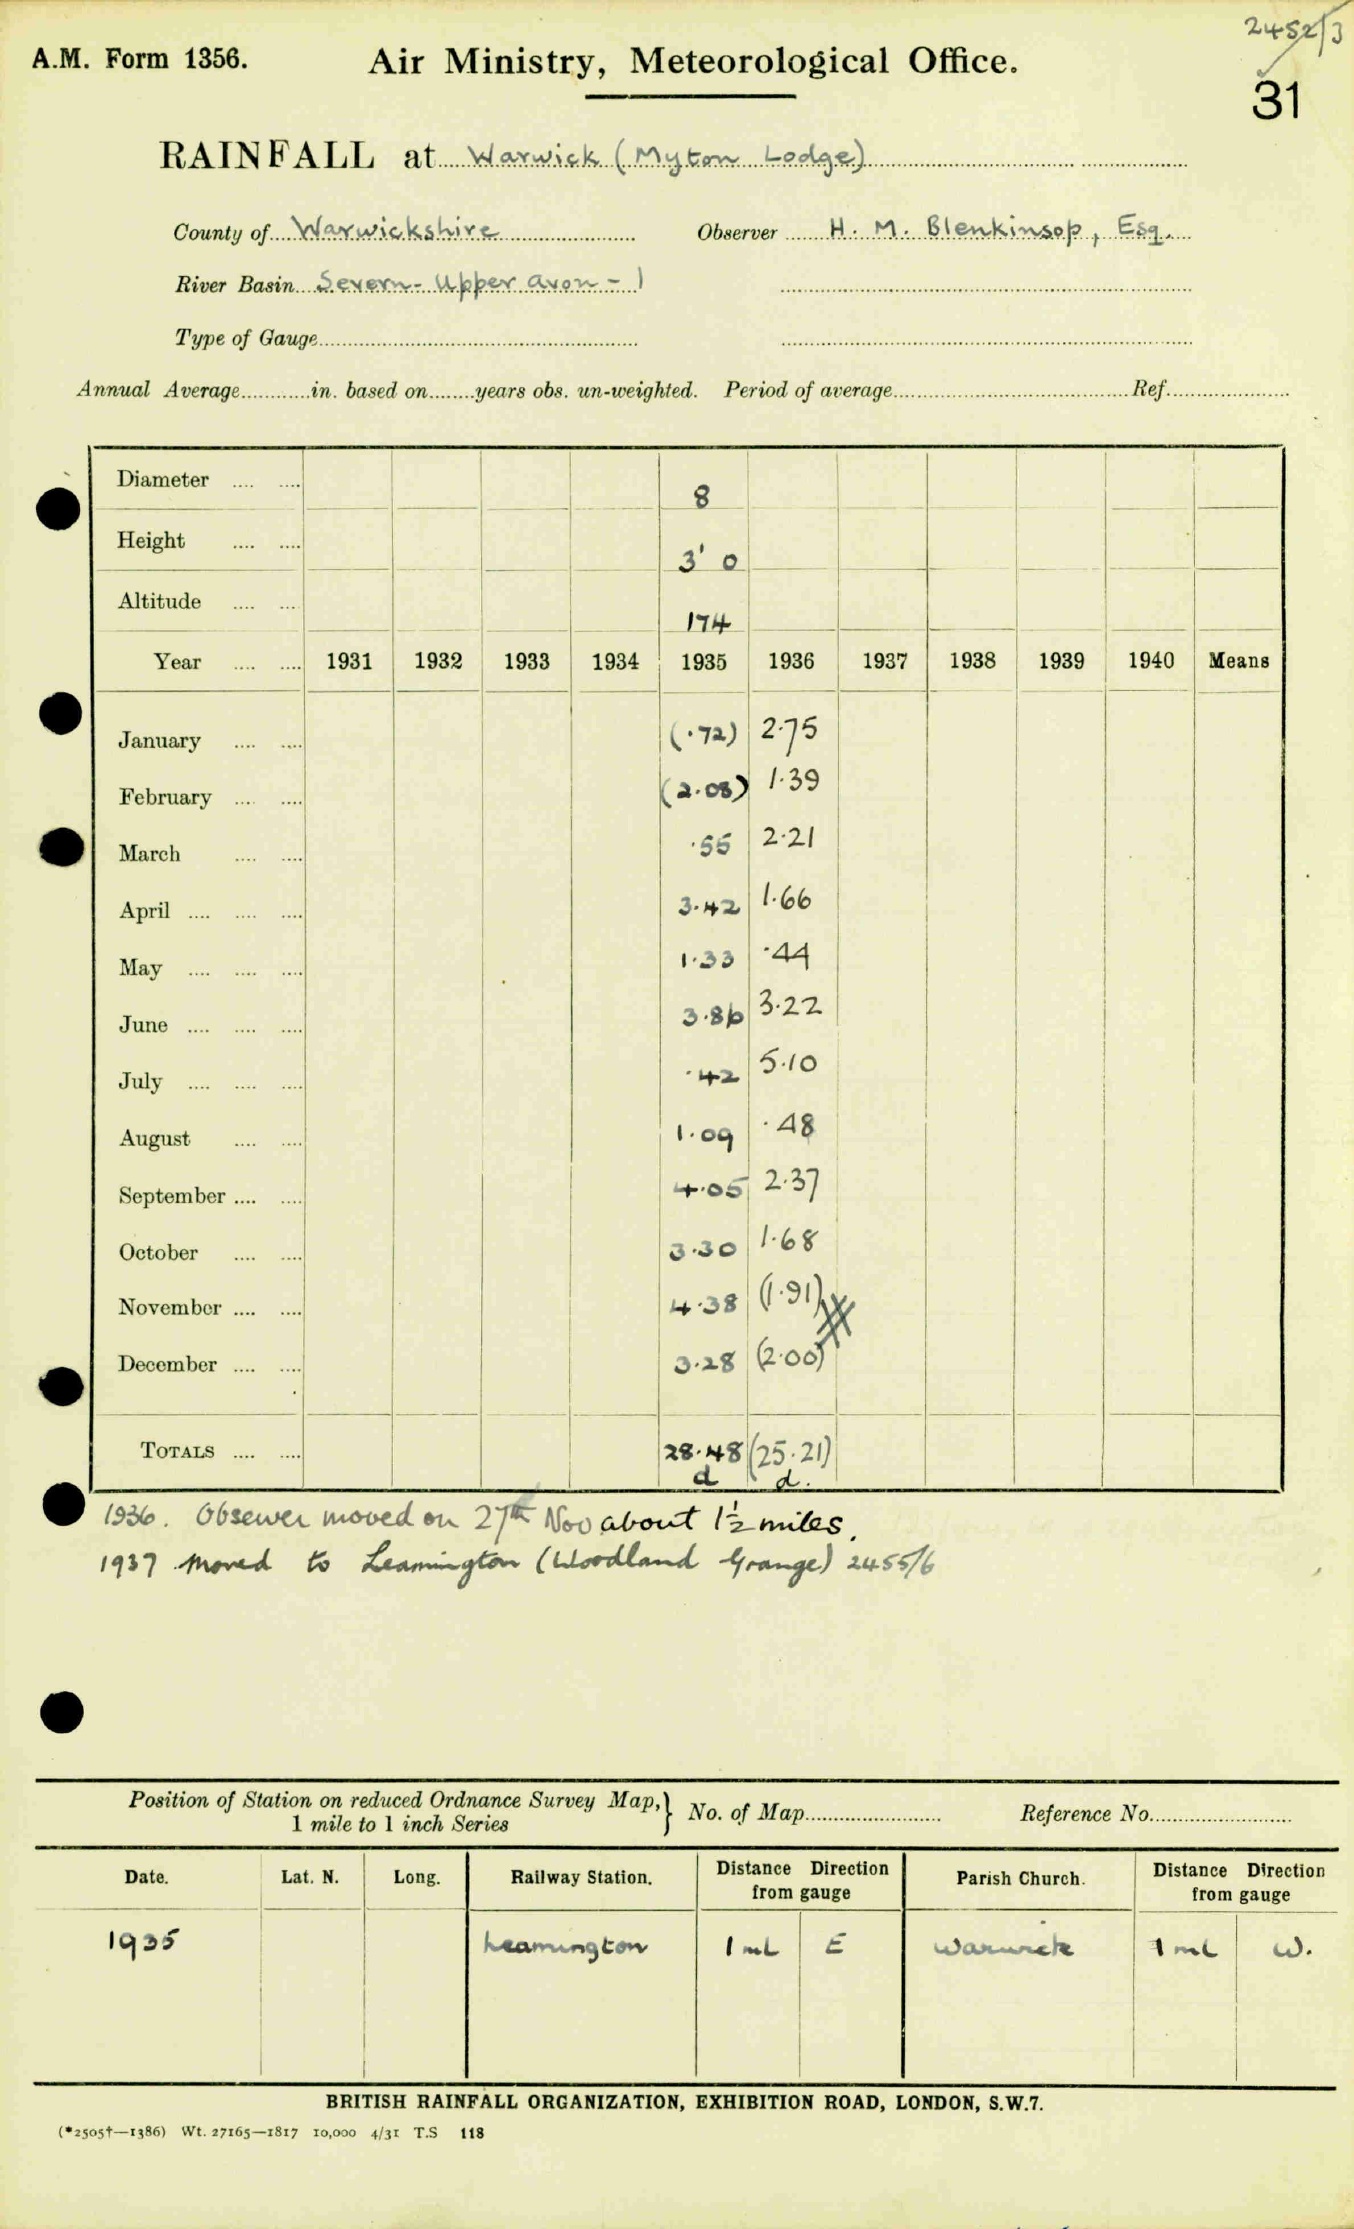 2452/3
A.M. Form 1356. Air Ministry, Meteorological Office.
31
RAINFALL at Warwick (Myton Lodge)
County of Warwickshire Observer H. M. Blenkinsop, Esq.
River Basin Severn - Upper Avon - 1
Type of Gauge
Annual Average in. based on years obs. un-weighted. Period of average Ref.
Diameter 8
Height 3' 0
Altitude 174
Year 1931 1932 1933 1934 1935 1936 1937 1938 1939 1940 Means
January (.72) 2.75
February (2.08) 1.39
March .55 2.21
April 3.42 1.66
May 1.33 .44
June 3.86 3.22
July .42 5.10
August 1.09 .48
September 4.05 2.37
October 3.30 1.68
November 4.38 (1.91)
December 3.28 (2.00)
TOTALS 28.48 (25.21)
d d.
1936. Observer moved on 27th Nov about 1½ miles.
1937 Moved to Leamington (Woodland Grange) 2455/6
Position of Station on reduced Ordnance Survey Map, } No. of Map Reference No.
1 mile to 1 inch Series
Date. Lat. N. Long. Railway Station. Distance Direction from gauge Parish Church. Distance Direction from gauge
1935 Leamington 1 ml E Warwick 1 ml W.
BRITISH RAINFALL ORGANIZATION, EXHIBITION ROAD, LONDON, S.W.7.
(*2505†—1386) Wt. 27165—1817 10,000 4/31 T.S 118